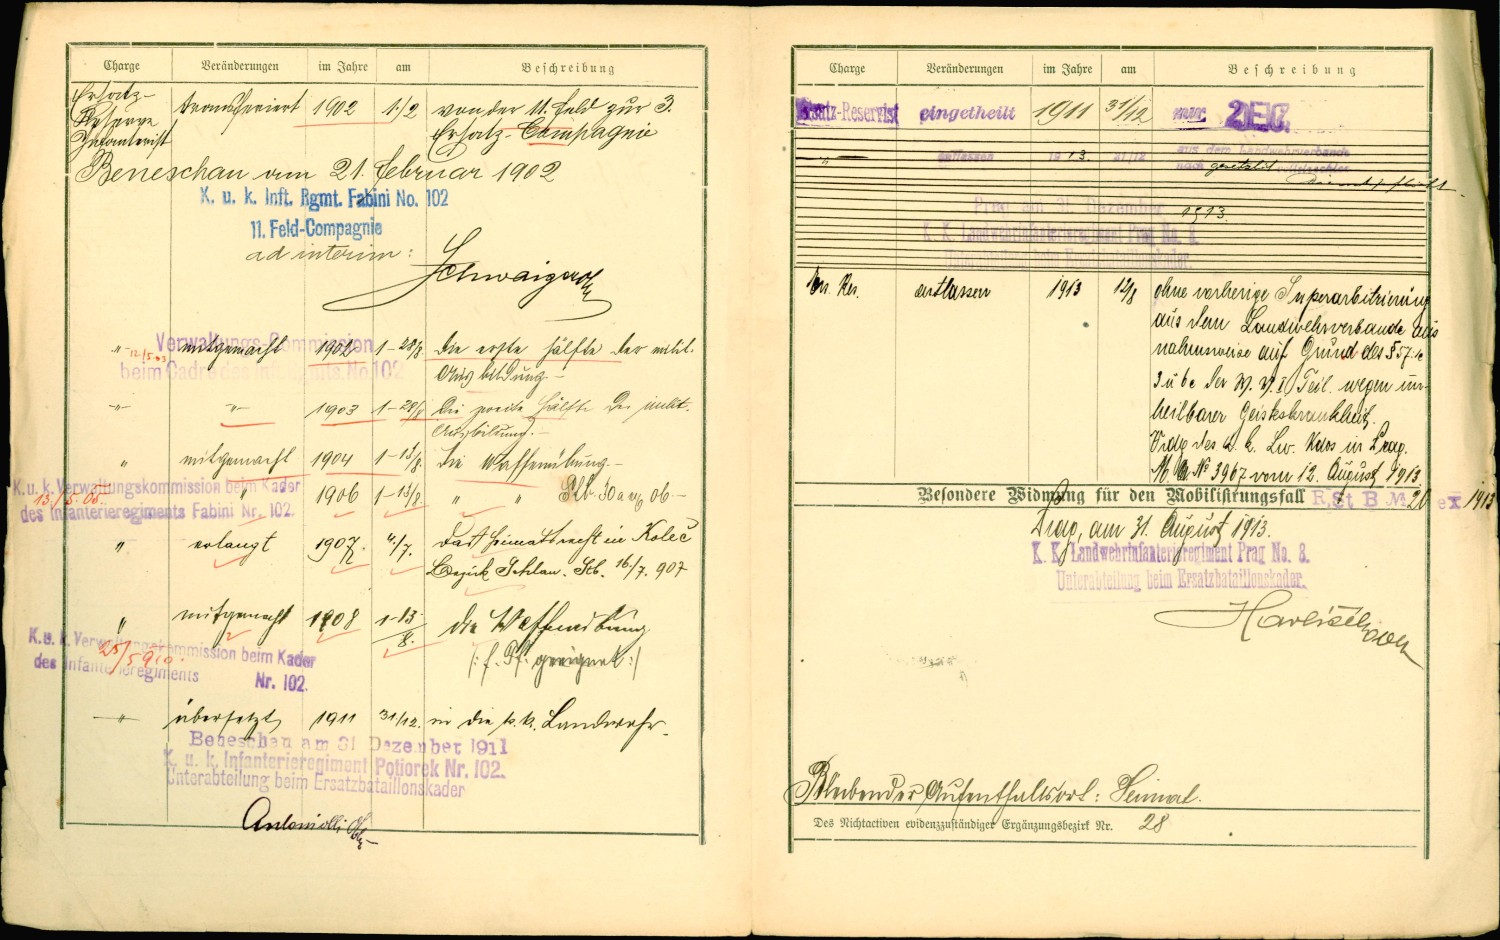 Charge Veränderungen im Jahre am Beschreibung
Ersatz- transferiert 1902 1./2 von der 11. Feld zur 3.
Reserve Ersatz-Compagnie
Infanterist
Beneschau am 21. Februar 1902
K. u. k. Inft. Rgmt. Fabini No. 102
11. Feld-Compagnie
ad interim:
Verwaltungs-Commission
" mitgemacht 1902 1-28/8. die erste Hälfte der milit.
12/5.03
beim Cadre des Inft. Rgmts. No. 102
Ausbildung.-
" " 1903 1-28/8 die zweite Hälfte der milit.
Ausbildung.-
" mitgemacht 1904 1-13/8. die Waffenübung.-
K. u. k. Verwaltungskommission beim Kader
" 1906 1-13/8. " "
13/5.05.
des Infanterieregiments Fabini Nr. 102.
" erlangt 1907. 4./7. das Heimatsrecht in Koleč
Bezirk Schlan. Stb. 16/7. 907
" mitgemacht 1908 1-13/8. die Waffenübung
K. u. k. Verwaltungskommission beim Kader
25/5 910.
des Infanterieregiments Nr. 102.
geeignet:/
" übersetzt 1911 31/12. in die k. k. Landwehr.
Beneschau am 31 Dezember 1911
K. u. k. Infanterieregiment Potiorek Nr. 102.
Unterabteilung beim Ersatzbataillonskader
Charge Veränderungen im Jahre am Beschreibung
Ersatz-Reservist eingetheilt 1911 31/12 zur 2EC.
" entlassen 1913. 31/12 aus dem Landwehrverbande
nach gesetzlich vollstreckter
Dienstpflicht.
Prag am 31. Dezember 1913.
K. K. Landwehrinfanterieregiment Prag No. 8.
Unterabteilung beim Ersatzbataillonskader.
Ers. Res. entlassen 1913 12/8 ohne vorherige Superarbitrierung
aus dem Landwehrverbande aus
nahmsweise auf Grund des § 57:
W. V. I Teil. wegen un-
heilbarer Geisteskrankheit.
in Prag.
M. A. No 3967 vom 12. August 1913.
Besondere Widmung für den Mobilisierungsfall R. St B No 20 ex 1913
Prag, am 31. August 1913.
K. K. Landwehrinfanterieregiment Prag No. 8.
Unterabteilung beim Ersatzbataillonskader.
Bleibender Aufenthaltsort: Heimat.
Des Nichtactiven evidenzzuständiger Ergänzungsbezirk Nr. 28